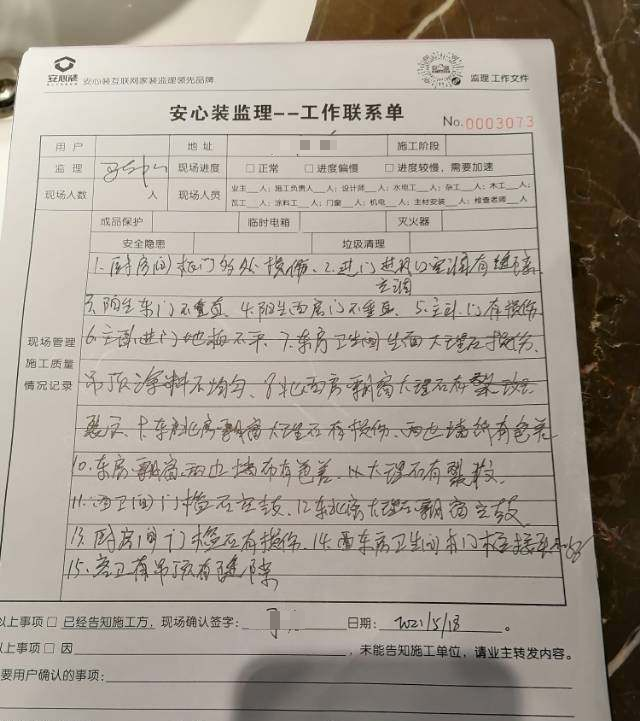 安心装 安心装互联网家装监理领先品牌 监理工作文件
安心装监理--工作联系单
No.0003073
用户 地址 施工阶段
监理 现场进度 □正常 □进度偏慢 □进度较慢,需要加速
现场人数 人 现场人员 业主__人;施工负责人__人;设计师__人;水电工__人;杂工__人;木工__人;
瓦工__人;涂料工__人;门窗__人;机电__人;主材安装__人;检查老师__人
成品保护 临时电箱 灭火器
安全隐患 垃圾清理
现场管理
施工质量
情况记录
1.厨房间 损伤、2.进门
门不垂直、4.阳台西房门不垂直、5.主卧门有损伤
6.主卧进门地板不平、7.东房卫生间台面大理石损伤、
吊顶涂料不均匀、8.北西房飘窗大理石有裂
大理石有损伤、两边墙纸有色差
10.东房飘窗两边墙布有色差、以大理石有裂纹
11.西卫间门槛石空鼓、12.东北房大理石飘窗空鼓
13.厨房间门槛石有损伤、14.西东房卫生间
15.客卫有吊顶有
以上事项□已经告知施工方,现场确认签字: 日期:2021/5/18。
以上事项□因 ,未能告知施工单位,请业主转发内容。
要用户确认的事项: